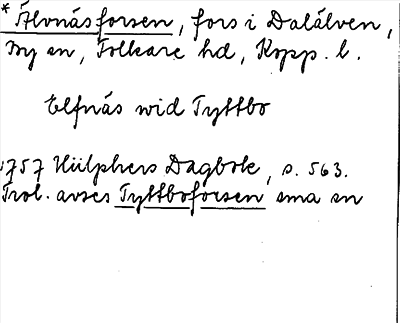 * Älvnäsforsen, fors i Dalälven,
By sn, Folkare hd, Kopp. l.
Elfnäs wid Tyttbo
1757 Hülphers Dagbok, s. 563.
Trol. avses Tyttboforsen sma sn